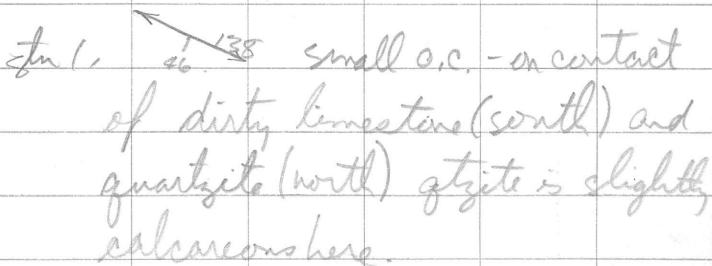 stn 1. 46 138 small o.c. - on contact
of dirty limestone (south) and
quartzite (north) qtzite is slightly
calcareous here.